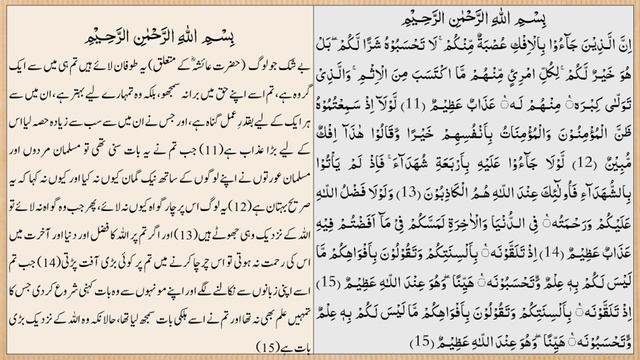 بِسْمِ اللهِ الرَّحْمٰنِ الرَّحِيْمِ
اِنَّ الَّذِيْنَ جَآءُوْا بِالْاِفْكِ عُصْبَةٌ مِّنْكُمْ ۚ لَا تَحْسَبُوْهُ شَرًّا لَّكُمْ ۖ بَلْ
هُوَ خَيْرٌ لَّكُمْ ۚ لِكُلِّ امْرِئٍ مِّنْهُمْ مَّا اكْتَسَبَ مِنَ الْاِثْمِ ۚ وَالَّذِىْ
تَوَلّٰى كِبْرَهٝ مِنْهُمْ لَـهٝ عَذَابٌ عَظِيْمٌ (11) لَّوْلَآ اِذْ سَمِعْتُمُوْهُ
ظَنَّ الْمُؤْمِنُوْنَ وَالْمُؤْمِنَاتُ بِاَنْفُسِهِمْ خَيْـرًا وَّقَالُوْا هٰذَآ اِفْكٌ
مُّبِيْنٌ (12) لَّوْلَا جَآءُوْا عَلَيْهِ بِاَرْبَعَةِ شُهَدَآءَ ۚ فَاِذْ لَمْ يَاْتُوْا
بِالشُّهَدَآءِ فَاُولٰٓئِكَ عِنْدَ اللّـٰهِ هُمُ الْكَاذِبُوْنَ (13) وَلَوْلَا فَضْلُ اللّـٰهِ
عَلَيْكُمْ وَرَحْـمَتُهٝ فِى الدُّنْيَا وَالْاٰخِرَةِ لَمَسَّكُمْ فِىْ مَآ اَفَضْتُـمْ فِيْهِ
عَذَابٌ عَظِيْـمٌ (14) اِذْ تَلَقَّوْنَهٝ بِاَلْسِنَتِكُمْ وَتَقُوْلُوْنَ بِاَفْوَاهِكُمْ مَّا
لَيْسَ لَكُمْ بِهٖ عِلْمٌ وَّتَحْسَبُوْنَهٝ هَيِّنًاۖ وَّهُوَ عِنْدَ اللّـٰهِ عَظِيْـمٌ (15)
اِذْ تَلَقَّوْنَهٝ بِاَلْسِنَتِكُمْ وَتَقُوْلُوْنَ بِاَفْوَاهِكُمْ مَّا لَيْسَ لَكُمْ بِهٖ عِلْمٌ
وَّتَحْسَبُوْنَهٝ هَيِّنًاۖ وَّهُوَ عِنْدَ اللّـٰهِ عَظِيْـمٌ (15)
بِسْمِ اللهِ الرَّحْمٰنِ الرَّحِيْمِ
بے شک جو لوگ (حضرت عائشہؓ کے متعلق) یہ طوفان لائے ہیں تم ہی میں سے ایک
گروہ ہے، تم اسے اپنے حق میں برا نہ سمجھو، بلکہ وہ تمہارے لیے بہتر ہے، ان میں سے
ہر ایک کے لیے بقدرِ عمل گناہ ہے، اور جس نے ان میں سے سب سے زیادہ حصہ لیا اس
کے لیے بڑا عذاب ہے(11) جب تم نے یہ بات سنی تھی تو مسلمان مردوں اور
مسلمان عورتوں نے اپنے لوگوں کے ساتھ نیک گمان کیوں نہ کیا اور کیوں نہ کہا کہ یہ
صریح بہتان ہے(12) یہ لوگ اس پر چار گواہ کیوں نہ لائے، پھر جب وہ گواہ نہ لائے تو
اللہ کے نزدیک وہی جھوٹے ہیں(13) اور اگر تم پر اللہ کا فضل اور دنیا اور آخرت میں
اس کی رحمت نہ ہوتی تو اس چرچا کرنے میں تم پر کوئی بڑی آفت پڑتی(14) جب تم
اسے اپنی زبانوں سے نکالنے لگے اور اپنے مونہوں سے وہ بات کہنی شروع کردی جس کا
تمہیں علم بھی نہ تھا اور تم نے اسے ہلکی بات سمجھ لیا تھا، حالانکہ وہ اللہ کے نزدیک بڑی
بات ہے(15)